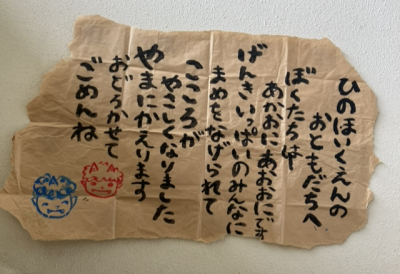 ひのほいくえんの
おともだちへ
ぼくたちは
あかおにあおおにです
げんきいっぱいのみんなに
まめをなげられて
こころが
やさしくなりました
やまにかえります
おどろかせて
ごめんね